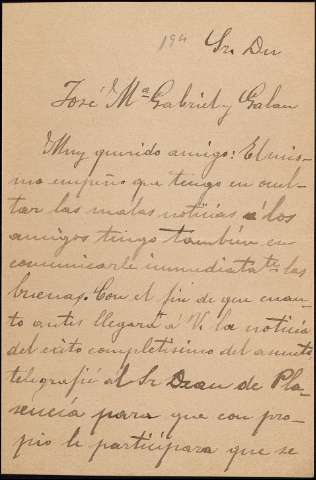 194
Sr. Dn
José Mª Gabriel y Galan
Muy querido amigo: El mis-
mo empeño que tengo en ocul-
tar las malas noticias á los
amigos tengo tambien en
comunicarle immediatate las
buenas. Con el fin de que cuan-
to antes llegará á V. la noticia
del exito completisimo del asunto
telegrafié ál Sr Dean de Pla-
sencia para que con pro-
pio le participara que se